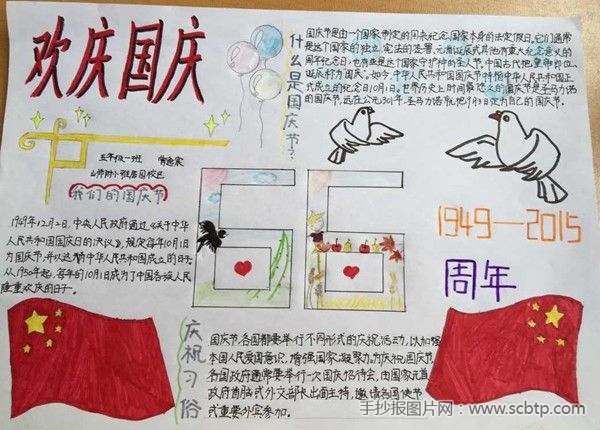 欢庆国庆
什么是国庆节?
国庆节是由一个国家制定的用来纪念国家本身的法定假日。它们通常
是这个国家的独立、宪法的签署、元首诞辰或其他有重大纪念意义的
周年纪念日;也有些是这个国家守护神的圣人节。中国古代把皇帝即位、
诞辰称为"国庆"。如今,中华人民共和国国庆节特指中华人民共和国正
式成立的纪念日10月1日。世界历史上时间最悠久的国庆节是圣马力诺
的国庆节,远在公元301年,圣马力诺就把9月3日定为自己的国庆节。
五年级一班
山师附小雅居园校区
我们的国庆节
1949年12月2日,中央人民政府通过《关于中华
人民共和国国庆日的决议》,规定每年10月1日
为国庆节,并以这
中华人民共和国成立的日子。
从1950年起,每年的10月1日成为了中国各族人民
隆重欢庆的日子。
66
1949—2015
周年
庆祝习俗
国庆节,各国都要举行不同形式的庆祝活动,以加强
本国人民爱国意识,增强国家凝聚力。为庆祝国庆节,
各国政府通常要举行一次国庆招待会,由国家元首、
政府首脑或外交部长出面主持,邀请各国使节
或重要外宾参加。
手抄报图片网:www.scbtp.com